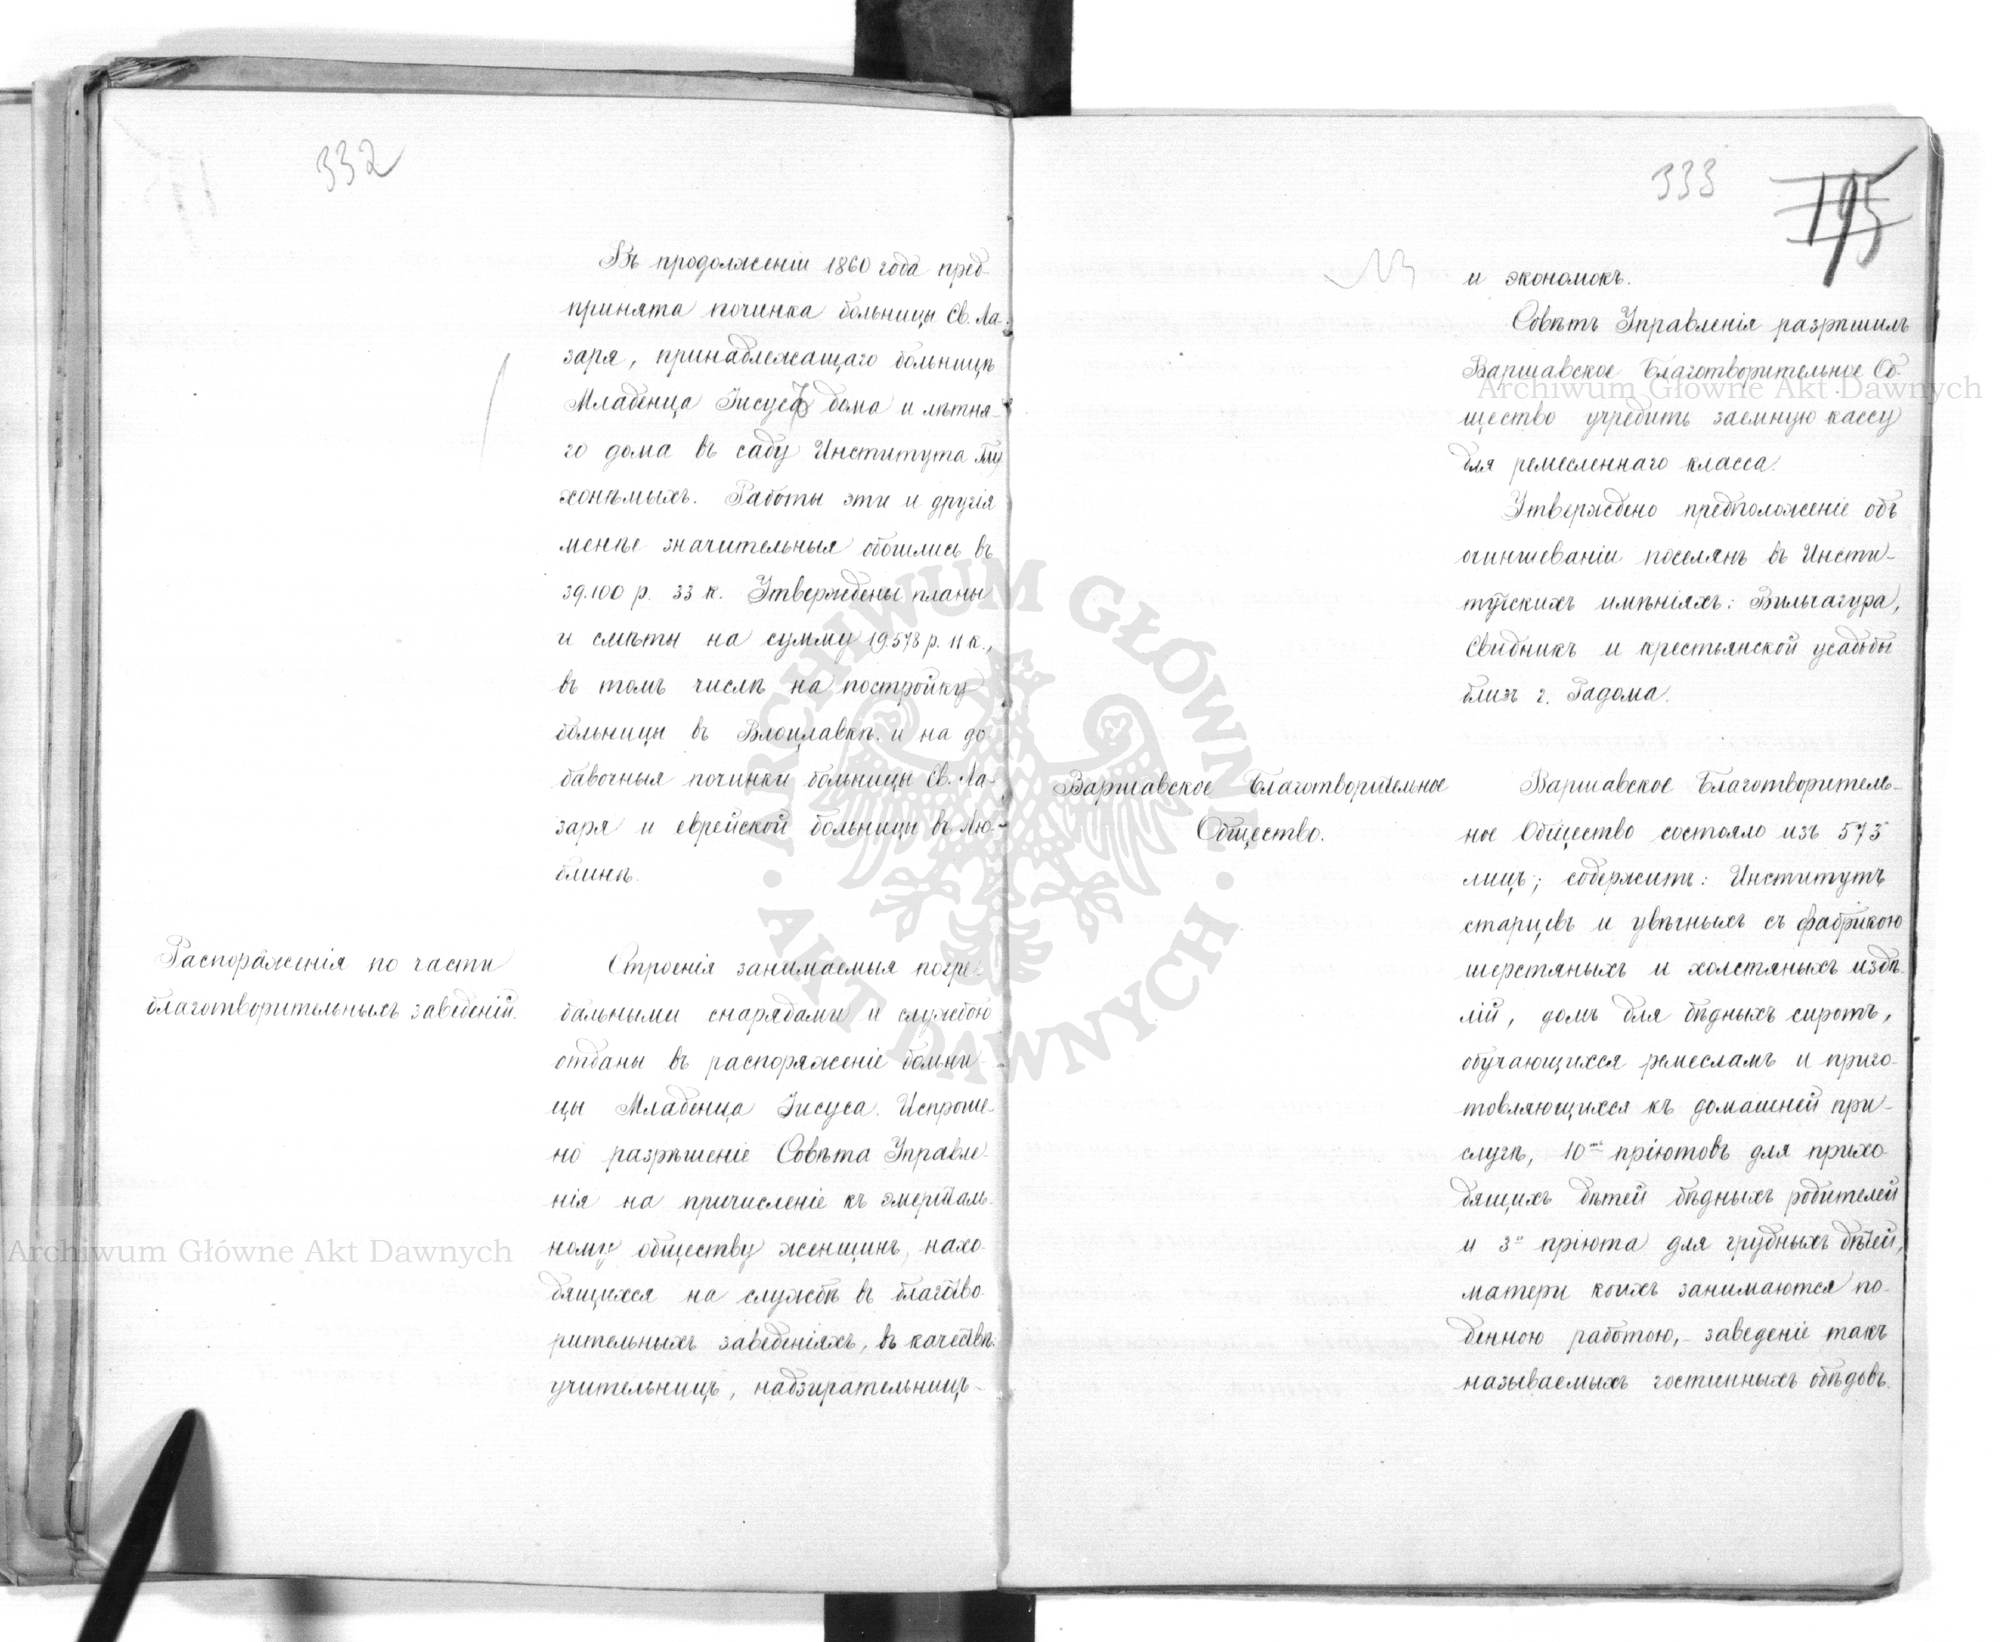 332
Въ продолженіи 1860 года пред-
принята починка больницы Св. Ла-
заря, принадлежащаго больницѣ
Младенца Іисуса дома и лѣтня-
го дома въ саду Института глу
хонѣмыхъ. Работы эти и другія
менѣе значительныя обошлись въ
39.100 р. 33 к. Утверждены планы
и смѣты на сумму 19.578 р. 11 к.,
въ томъ числѣ на постройку
больницы въ Влоцлавкѣ и на до
бавочныя починки больницы Св. Ла-
заря и еврейской больницы въ Лю-
блинѣ.
Распоряженія по части
благотворительныхъ заведеній.
Строенія занимаемыя погре-
бальными снарядами и службою
отданы въ распоряженіе больни-
цы Младенца Іисуса. Испроше-
но разрѣшеніе Совѣта Управле
нія на причисленіе къ эмериталь-
ному обществу женщинъ, нахо-
дящихся на службѣ въ благотво-
рительныхъ заведеніяхъ, въ качествѣ
учительницъ, надзирательницъ
333
195
и экономокъ.
Совѣтъ Управленія разрѣшилъ
Варшавское Благотворительное Об-
щество учредить заемную кассу
для ремесленнаго класса.
Утверждено предположеніе объ
очиншеваніи поселянъ въ Инсти-
тутскихъ имѣніяхъ: Вильчагура,
Свидникъ и крестьянской усадьбы
близъ г. Радома.
Варшавское Благотворительное
Общество.
Варшавское Благотворитель-
ное Общество состояло изъ 575
лицъ; содержитъ: Институтъ
старцевъ и увѣчныхъ съ фабрикою
шерстяныхъ и холстяныхъ издѣ-
лій, домъ для бѣдныхъ сиротъ,
обучающихся ремесламъ и приго-
товляющихся къ домашней при-
слугѣ, 10ть пріютовъ для прихо
дящихъ дѣтей бѣдныхъ родителей
и 3и пріюта для грудныхъ дѣтей,
матери коихъ занимаются по-
денною работою, - заведеніе такъ
называемыхъ гостинныхъ обѣдовъ.
Archiwum Główne Akt Dawnych
Archiwum Główne Akt Dawnych
ARCHIWUM GŁÓWNE · AKT DAWNYCH ·